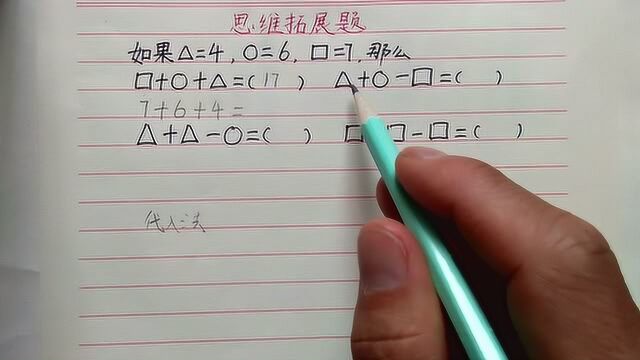 思维拓展题
如果△=4，○=6，□=7，那么
□+○+△=(17) △+○-□=( )
7+6+4=
△+△-○=( ) □ □-□=( )
代入法